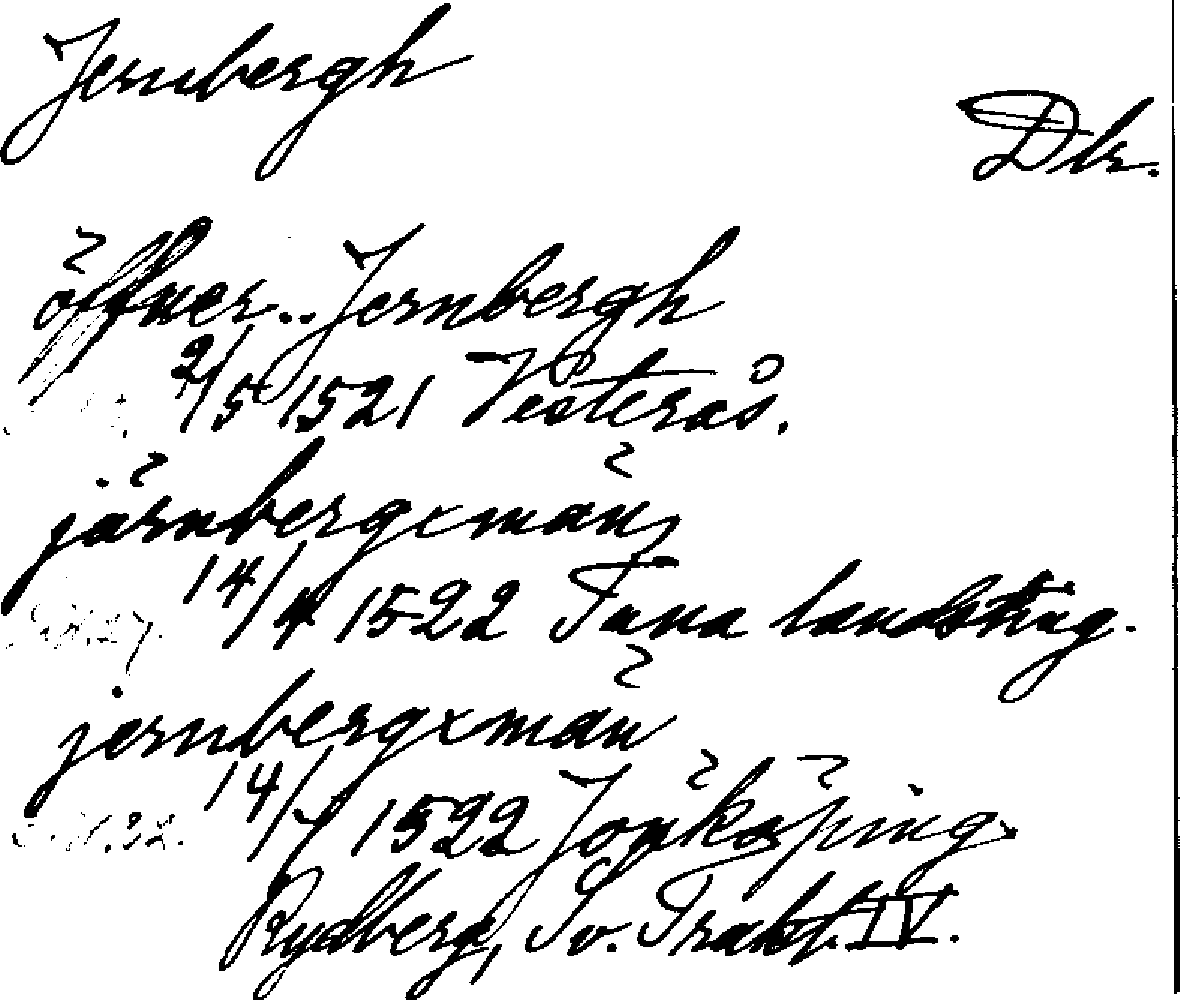 Jernbergh
Dlr.
öffuer.. Jernbergh
2/5 1521 Vesterås.
järnbergxmän
14/4 1522 Tuna landsting.
jernbergxmän
14/7 1522 Jönköping
Rydberg, Sv. Trakt. IV.